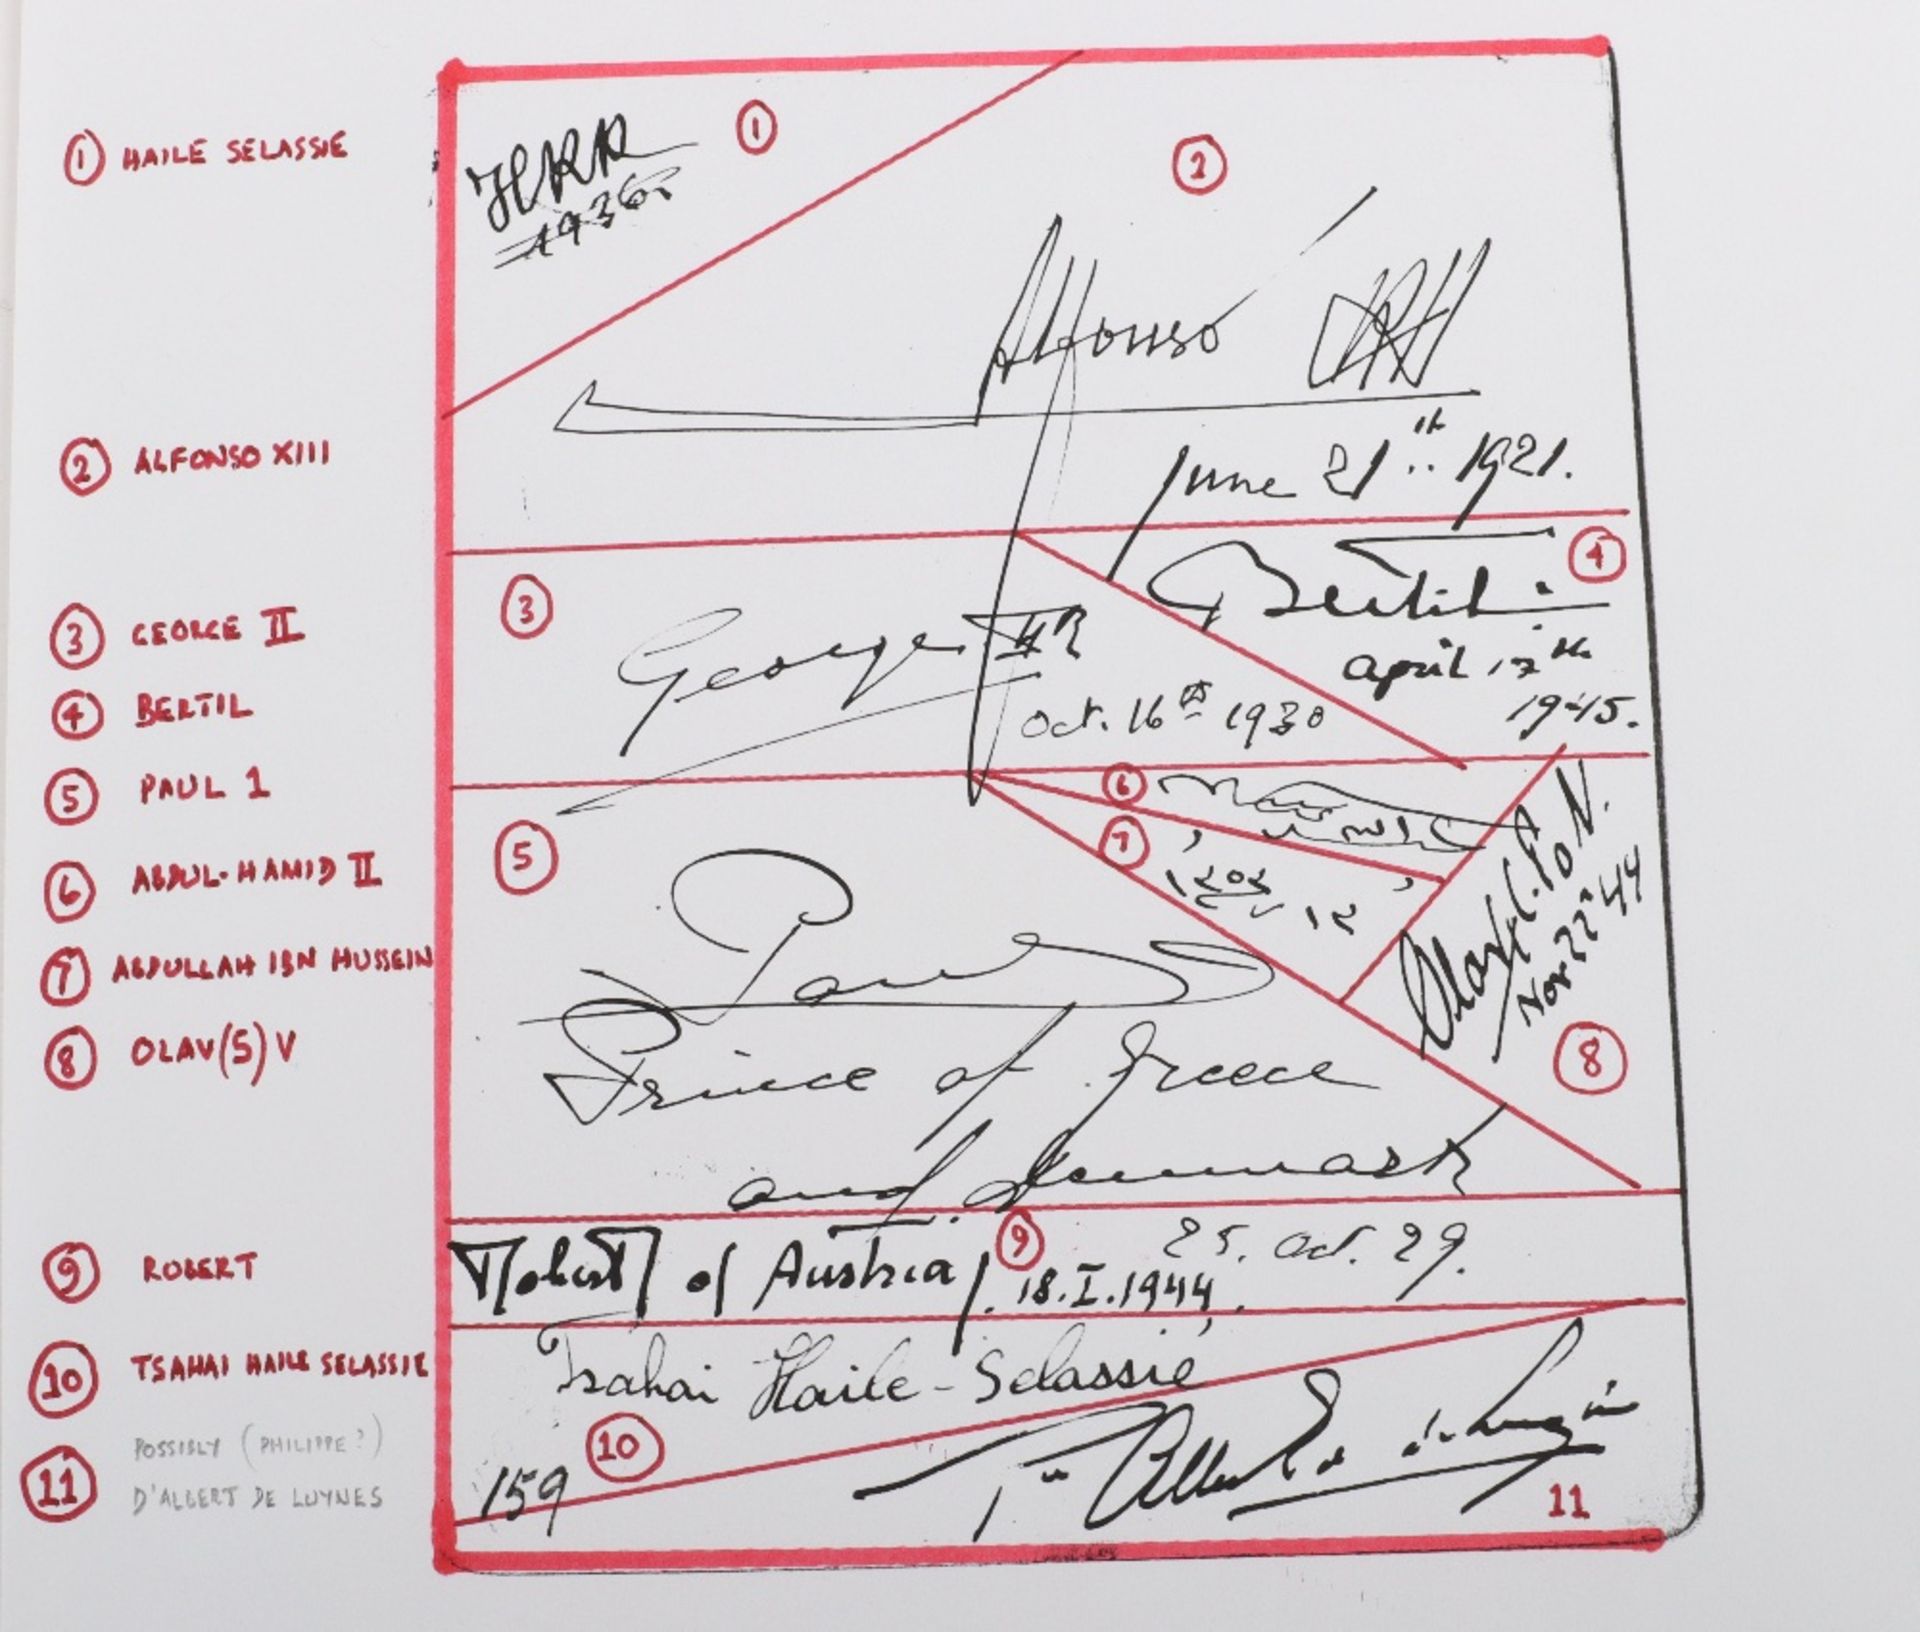 ① HAILE SELASSIE
② ALFONSO XIII
③ GEORGE II
④ BERTIL
⑤ PAUL 1
⑥ ABDUL-HAMID II
⑦ ABDULLAH IBN HUSSEIN
⑧ OLAV(S) V
⑨ ROBERT
⑩ TSAHAI HAILE SELASSIE
⑪ POSSIBLY (PHILIPPE?)
D'ALBERT DE LUYNES
①
1936
②
Alfonso
June 21th 1921.
③
George II R
Oct. 16th 1930
④
Bertil
april 17th
1945.
⑤
Paul
Prince of Greece
and Denmark
25. Oct. 29.
⑥
⑦
⑧
Nov 22 44
⑨
Robert of Austria
18.I.1944.
⑩
Tsahai Haile-Selassié
159
11